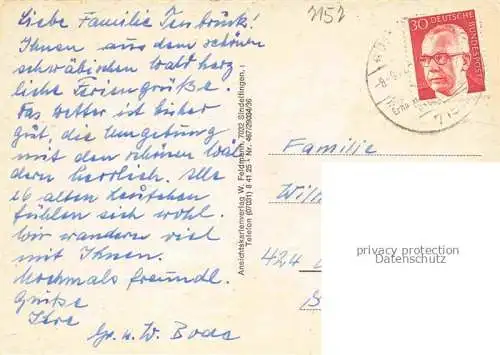 Liebe Familie Tenbrück!
Ihnen aus dem schönen
schwäbischen Wald herz
liche Feriengrüße.
Das Wetter ist bisher
gut, die Umgebung
mit den schönen Wäl
dern herrlich. Alle
26 alten Leutchen
fühlen sich wohl.
Wir wandern viel
mit Ihnen.
Nochmals freundl.
Grüße
Ihre
W. Bode
Ansichtskartenverlag W. Feldmann, 7032 Sindelfingen,
Telefon (07031) 8 41 25 - Nr.
3152
30 DEUTSCHE BUNDESPOST
Familie
424
privacy protection
Datenschutz